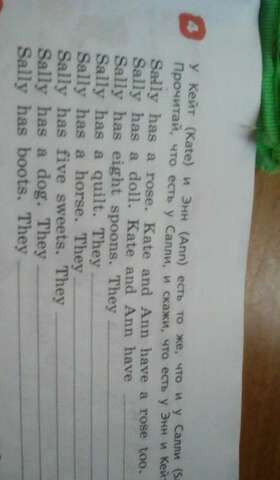 4 У Кейт (Kate) и Энн (Ann) есть то же, что и у Салли
Прочитай, что есть у Салли, и скажи, что есть у Энн и
Sally has a rose. Kate and Ann have a rose too.
Sally has a doll. Kate and Ann have
Sally has eight spoons. They
Sally has a quilt. They
Sally has a horse. They
Sally has five sweets. They
Sally has a dog. They
Sally has boots. They